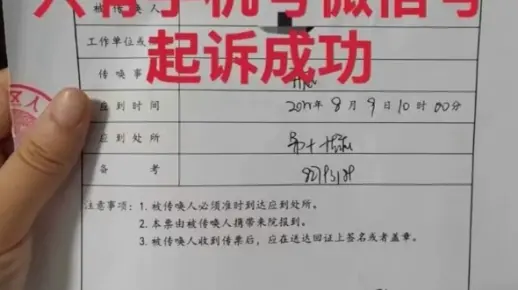 只有手机号微信号
起诉成功
被传唤人
工作单位或
传唤事
应到时间 8月9日10时00分
应到处所
备考
注意事项：1. 被传唤人必须准时到达应到处所。
2. 本票由被传唤人携带来院报到。
3. 被传唤人收到传票后，应在送达回证上签名或者盖章。
区人